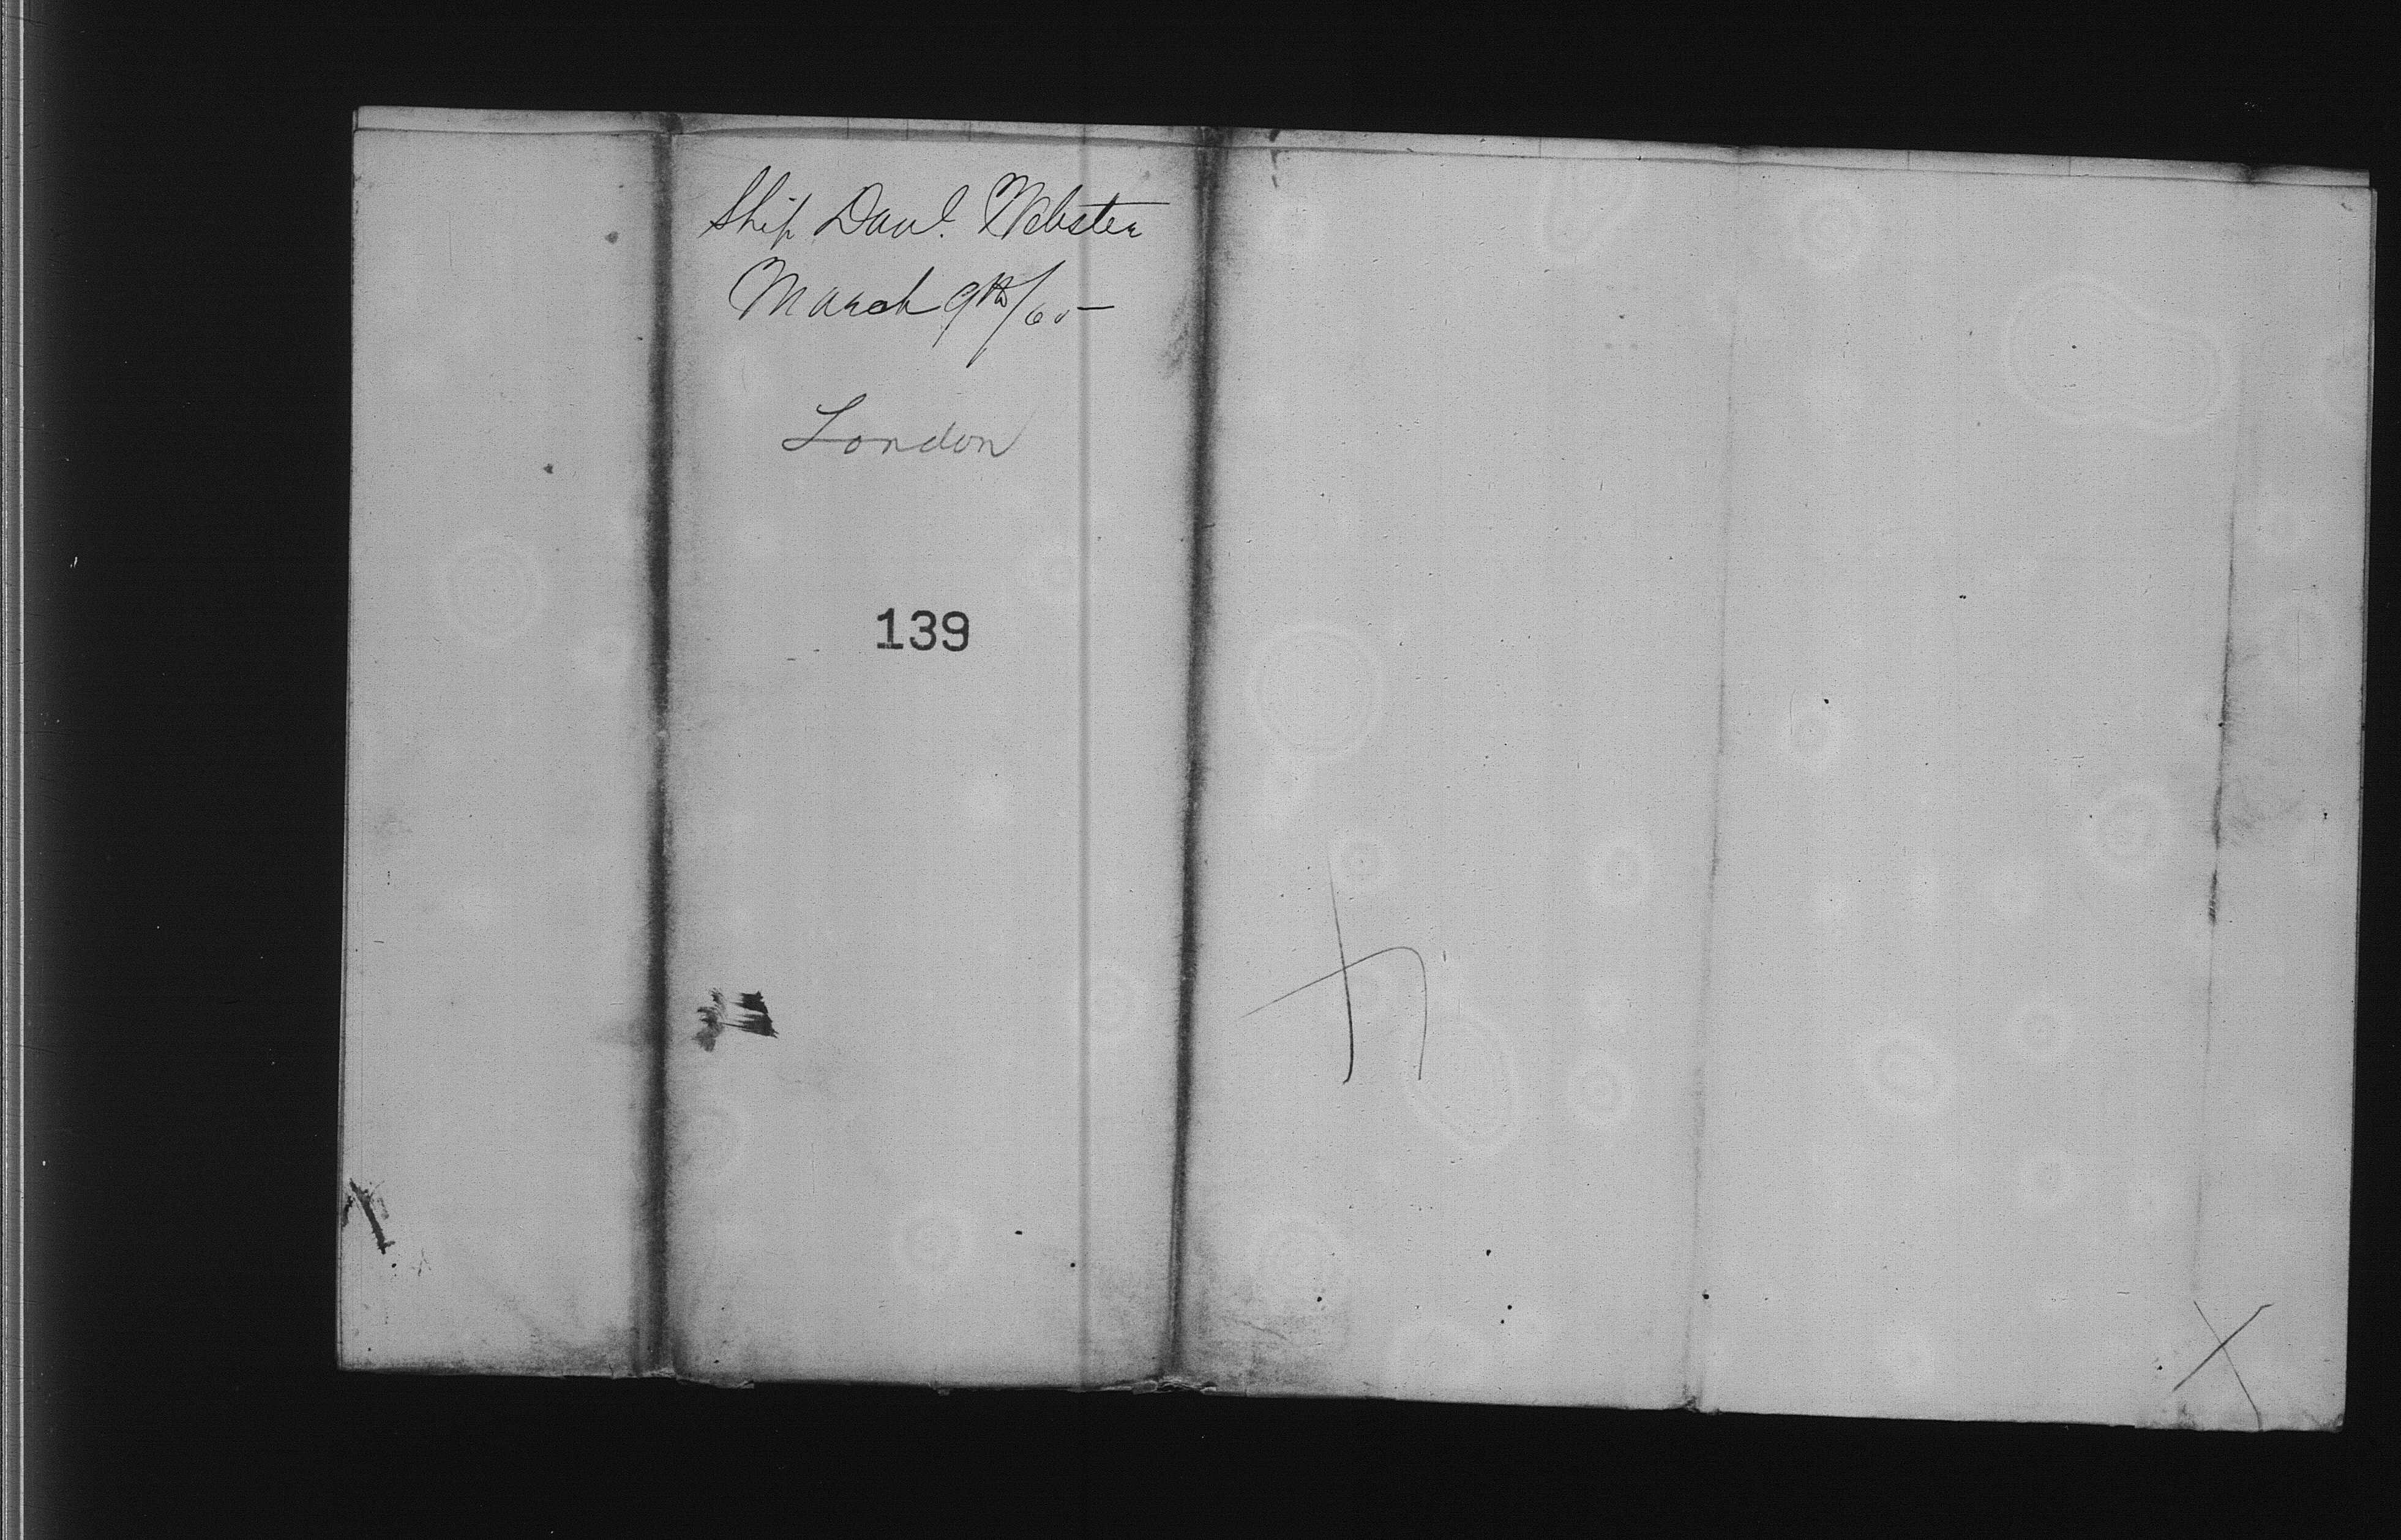 Ship Danl. Webster
March 9th/65
London
139